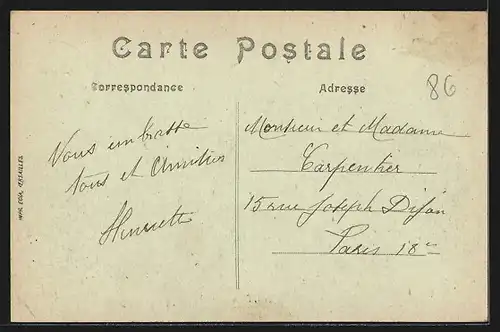 Carte Postale
Correspondance
Adresse
86
Vous embrasse
tous et Amitiés
Henriette
Monsieur et Madame
Carpentier
15 rue Joseph Dijon
Paris 18e